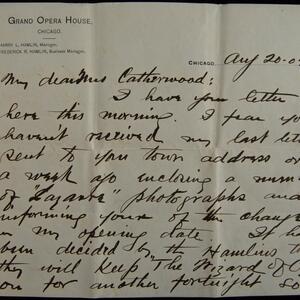 GRAND OPERA HOUSE,
CHICAGO.
HARRY L. HAMLIN, Manager.
FREDERICK R. HAMLIN, Business Manager.
CHICAGO, Aug 20-0
My dear Mrs Catherwood:
I have your letter
here this morning. I fear you
haven't received my last lett
sent to you town address on
a week ago inclosing a num
of "Lazarre" photographs and
informing you of the change
in my opening date. It ha
been decided by the Hamlins t
they will keep "The Wizard of O
on for another fortnight so